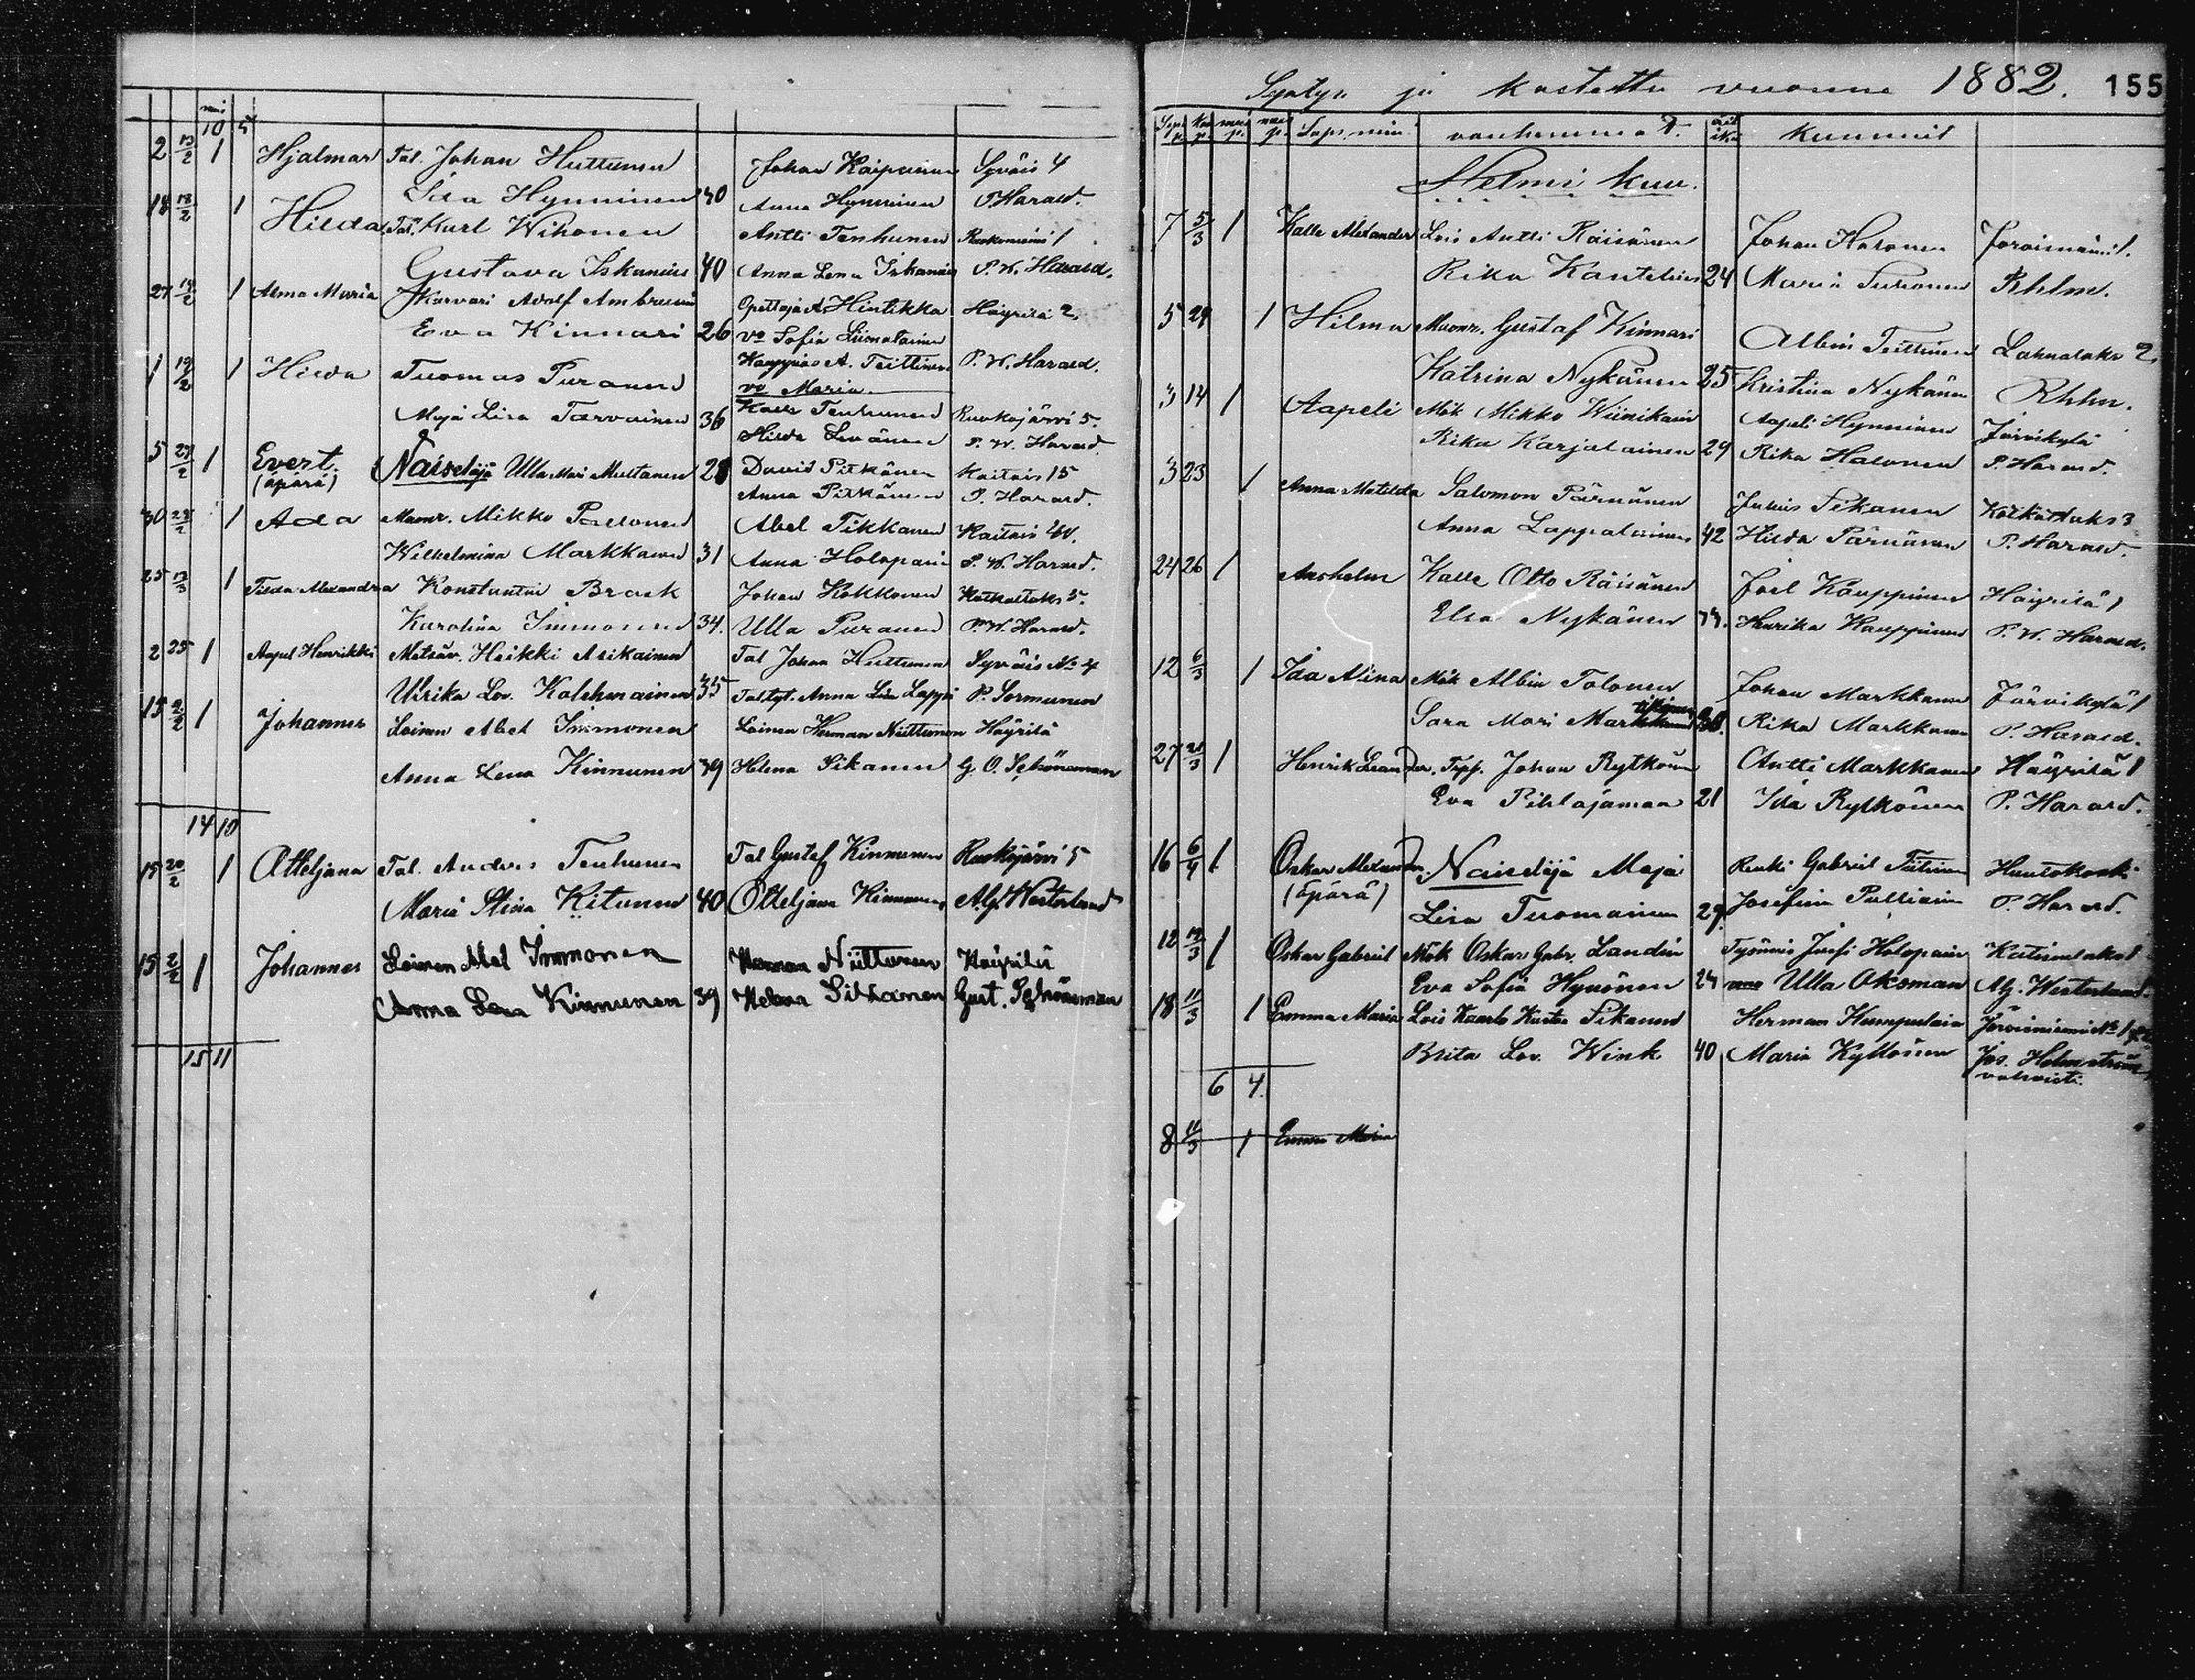 10 5
2 13/2 1 Hjalmar Tal. Johan Huttunen Johan Kaipainen Syväis 4
Lisa Hynninen 40 Anna Hynninen P. Harald.
18 18/2 1 Hilda Tal. Karl Wihonen Antti Tenhunen Ruokoniemi 1
Gustava Iskanius 40 Anna Lena Iskanius P. W. Harald.
27 19/2 1 Alma Maria Karvari Adolf Ambrusin Opettaja A. Hintikka Häyrilä 2.
Eva Kinnari 26 vo Sofia Liimatainen
1 19/2 1 Hilda Tuomas Puranen Kauppias A. Teittinen P. W. Harald.
vo Maria
Maja Lisa Tarvainen 36 Kalle Tenhunen Ruokojärvi 5.
Hilda Levänen P. W. Harald.
5 27/2 1 Evert Naiseläjä Ulla Mari Mustonen 28 David Pitkänen Kaitais 15
(äpärä) Anna Pitkänen P. Harald.
30 28/2 1 Ada Muonr. Mikko Partonen Abel Tikkanen Kaitais
Wilhelmina Markkanen 31 Anna Holopain P. W. Harald.
25 12/3 1 Tilda Alexandra Konstantin Brask Johan Kokkonen Kotkatlaks 5.
Karolina Immonen 34. Ulla Puranen P. W. Harald.
2 25 1 Aapel Henrikki Metsäv. Heikki Asikainen Tal Johan Huttunen Syväis No 4
Ulrika Lov. Kolehmainen 35 Tal.tyt. Anna Lisa Lappi P. Sormunen
15 2/2 1 Johannes Loinen Abel Immonen Loinen Herman Niittunen Häyrilä
Anna Lena Kinnunen 39 Helena Sikanen G. O. Schöneman
14 10
15 20/2 1 Otteljana Tal. Anders Tenhunen Tal Gustaf Kinnunen Ruokojärvi 5
Maria Stina Kitunen 40 Otteljana Kinnunen Alf. Westerlund
15 2/2 1 Johannes Loinen Abel Immonen Herman Niittunen Häyrilä
Anna Lena Kinnunen 39 Helena Sikanen Gust. Schöneman
15 11
Syntyn. ja kastettu vuonna 1882. 155
Laps. nimi vanhemmat. kummit
Helmi kuu.
7 5/3 1 Kalle Alexander Lois Antti Räisänen Johan Halonen Joroisniemi 1.
Rika Kantelius 24 Maria Turonen Rhlm.
5 24 1 Hilma Muonr. Gustaf Kinnari Albin Teittinen Lahnalaks 2.
Katrina Nykänen 25 Kristina Nykänen Rhlm.
3 14 1 Aapeli Mök Mikko Wiinikain Aapeli Hynninen Järvikylä
Rika Karjalainen 29 Rika Halonen P. Harald.
3 23 1 Anna Matilda Salomon Pärnänen Julius Sikanen Kotkatlaks 3
Anna Lappalainen 42 Hilda Pärnänen P. Harald.
24 26 1 Anshelm Kalle Otto Räisänen Joel Kauppinen Häyrilä 1
Elsa Nykänen Henrika Kauppinen P. W. Harald.
12 6/3 1 Ida Alina Mök Albin Tolonen Johan Markkanen Järvikylä 1
Sara Mari Markkanen Rika Markkanen P. Harald.
27 21/3 1 Henrik Leander. Johan Rytkön Antti Markkanen Häyrilä 1
Eva Pihlajamaa 21 Ida Rytkönen P. Harald.
16 6/4 1 Oskar Alexander. Naiseläjä Maja Renki Gabriel Tiilinen Huutokoski
(äpärä) Lisa Tuomainen 29. Josefina Pulliain P. Harald.
12 19/3 1 Oskar Gabriel Mök Oskar Gabr. Landin Työmies Jussi Holopain
Eva Sofia Hynönen 24 Ulla Oksman Alf. Westerlund.
18 11/3 1 Emma Maria Lois Kaarlo Kustaa Sikanen Herman Kumpulain Joroisniemi No 1
Brita Lov. Wink 40 Maria Kyllönen Jos. Holmström
vahvisti.
6 4.
8 11/3 1 Emma Maria